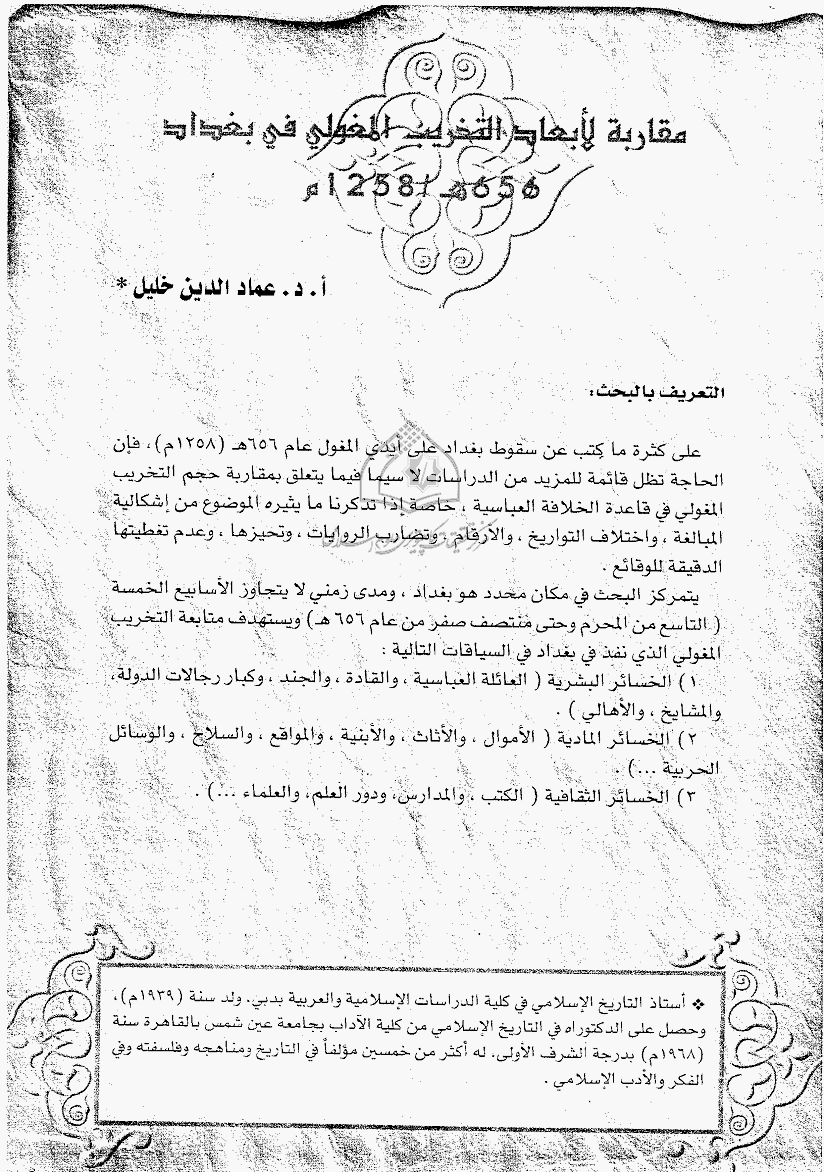 مقاربة لأبعاد التخريب المغولي في بغداد
656هـ/1258م
أ. د. عماد الدين خليل *
التعريف بالبحث:
على كثرة ما كتب عن سقوط بغداد على أيدي المغول عام ٦٥٦هـ (١٢٥٨م)، فإن
الحاجة تظل قائمة للمزيد من الدراسات لا سيما فيما يتعلق بمقاربة حجم التخريب
المغولي في قاعدة الخلافة العباسية ، خاصة إذا تذكرنا ما يثيره الموضوع من إشكالية
المبالغة ، واختلاف التواريخ ، والأرقام ، وتضارب الروايات ، وتحيزها ، وعدم تغطيتها
الدقيقة للوقائع .
يتمركز البحث في مكان محدد هو بغداد ، ومدى زمني لا يتجاوز الأسابيع الخمسة
( التاسع من المحرم وحتى منتصف صفر من عام ٦٥٦ هـ) ويستهدف متابعة التخريب
المغولي الذي نفذ في بغداد في السياقات التالية :
١) الخسائر البشرية ( العائلة العباسية ، والقادة ، والجند ، وكبار رجالات الدولة،
والمشايخ ، والأهالي ) .
٢) الخسائر المادية ( الأموال ، والأثاث ، والأبنية ، والمواقع ، والسلاح ، والوسائل
الحربية ...) .
٣) الخسائر الثقافية ( الكتب ، والمدارس، ودور العلم، والعلماء ...) .
❖ أستاذ التاريخ الإسلامي في كلية الدراسات الإسلامية والعربية بدبي. ولد سنة (١٩٣٩م)،
وحصل على الدكتوراه في التاريخ الإسلامي من كلية الآداب بجامعة عين شمس بالقاهرة سنة
(١٩٦٨م) بدرجة الشرف الأولى. له أكثر من خمسين مؤلفاً في التاريخ ومناهجه وفلسفته وفي
الفكر والأدب الإسلامي .